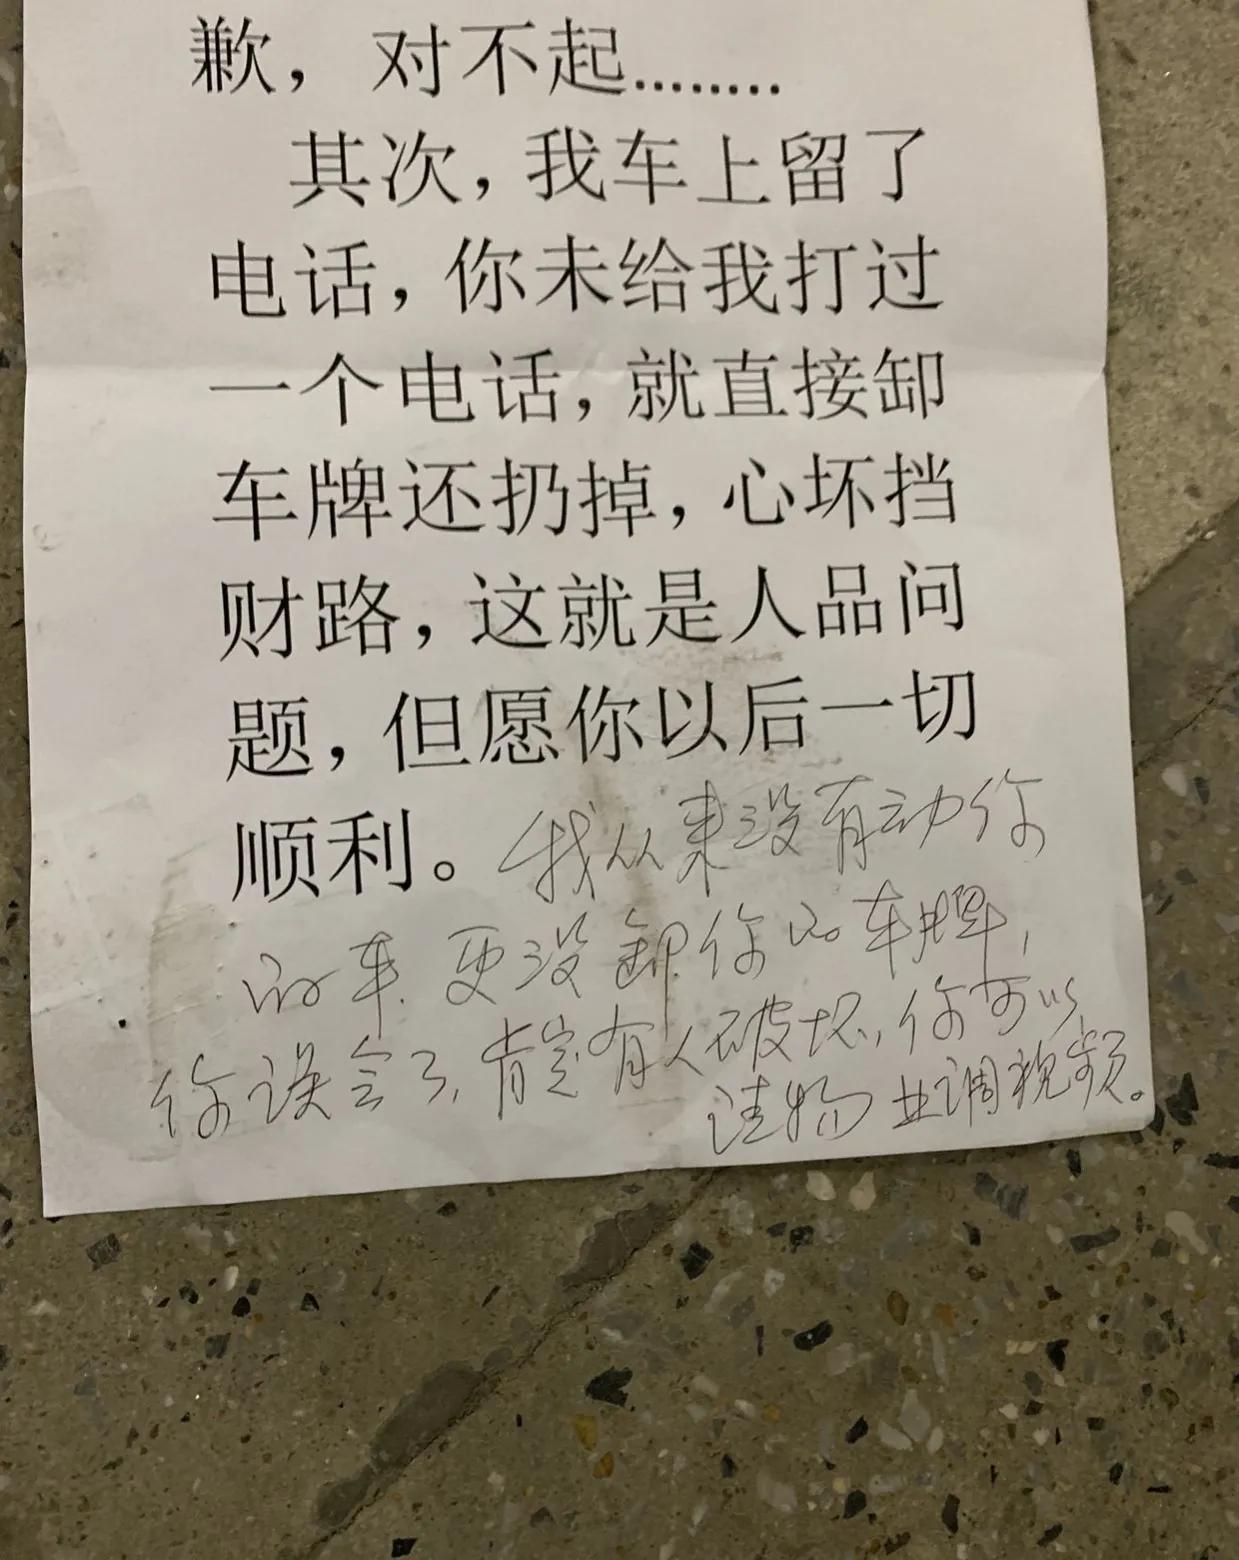 歉，对不起........
其次，我车上留了
电话，你未给我打过
一个电话，就直接卸
车牌还扔掉，心坏挡
财路，这就是人品问
题，但愿你以后一切
顺利。我从来没有动你
的车，更没卸你的车牌，
你误会了，肯定有人破坏，你可以
请物业调视频。